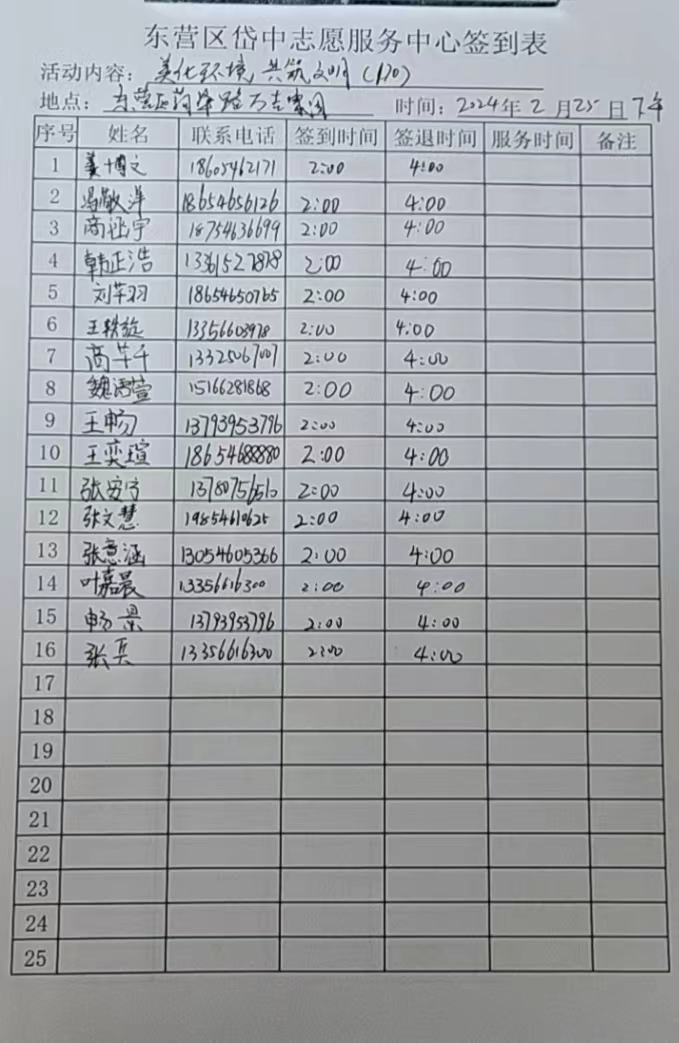 东营区岱中志愿服务中心签到表
活动内容：美化环境 共筑文明（170）
地点：东营区 路万 时间：2024年2月25日下午
序号 姓名 联系电话 签到时间 签退时间 服务时间 备注
1 姜博文 18605462171 2:00 4:00
2 冯敏洋 18654656126 2:00 4:00
3 商涵宇 18754636699 2:00 4:00
4 韩正浩 13361527878 2:00 4:00
5 刘芊羽 18654650765 2:00 4:00
6 王轶旋 13356603978 2:00 4:00
7 商芊千 13325067007 2:00 4:00
8 15166281868 2:00 4:00
9 王畅 13793953796 2:00 4:00
10 王奕瑄 18654688880 2:00 4:00
11 张安宁 2:00 4:00
12 张文慧 19854610625 2:00 4:00
13 张意涵 13054605366 2:00 4:00
14 叶嘉晨 13356616300 2:00 4:00
15 畅景 13793953796 2:00 4:00
16 张兵 13356616300 2:00 4:00
17
18
19
20
21
22
23
24
25